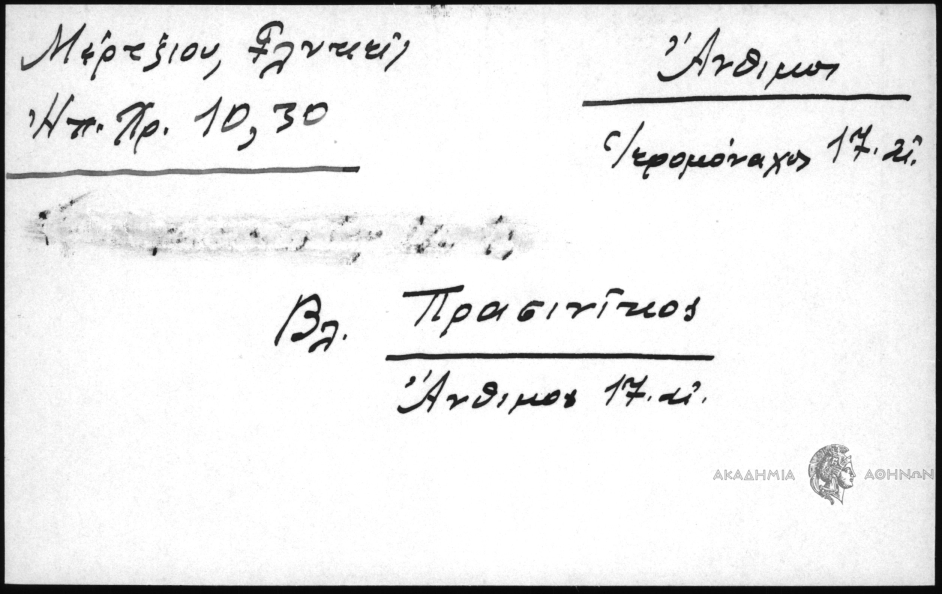 Μέρτζιου, Γλυκεῖς
Ἠπ. Χρ. 10, 30
Ἄνθιμος
Ἱερομόναχος 17. αἰ.
Βλ. Πρασινῖκος
Ἄνθιμος 17. αἰ.
ΑΚΑΔΗΜΙΑ ΑΘΗΝΩΝ